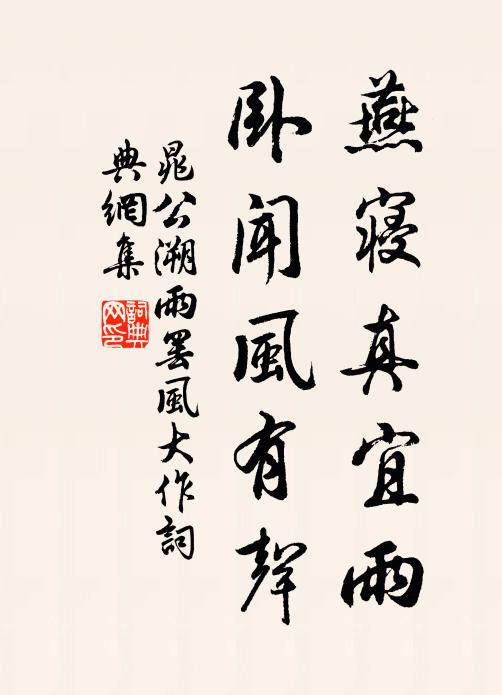 燕寝真宜雨
卧聞風有聲
晁公溯雨罢風大作詞
典網集
詞典
网印